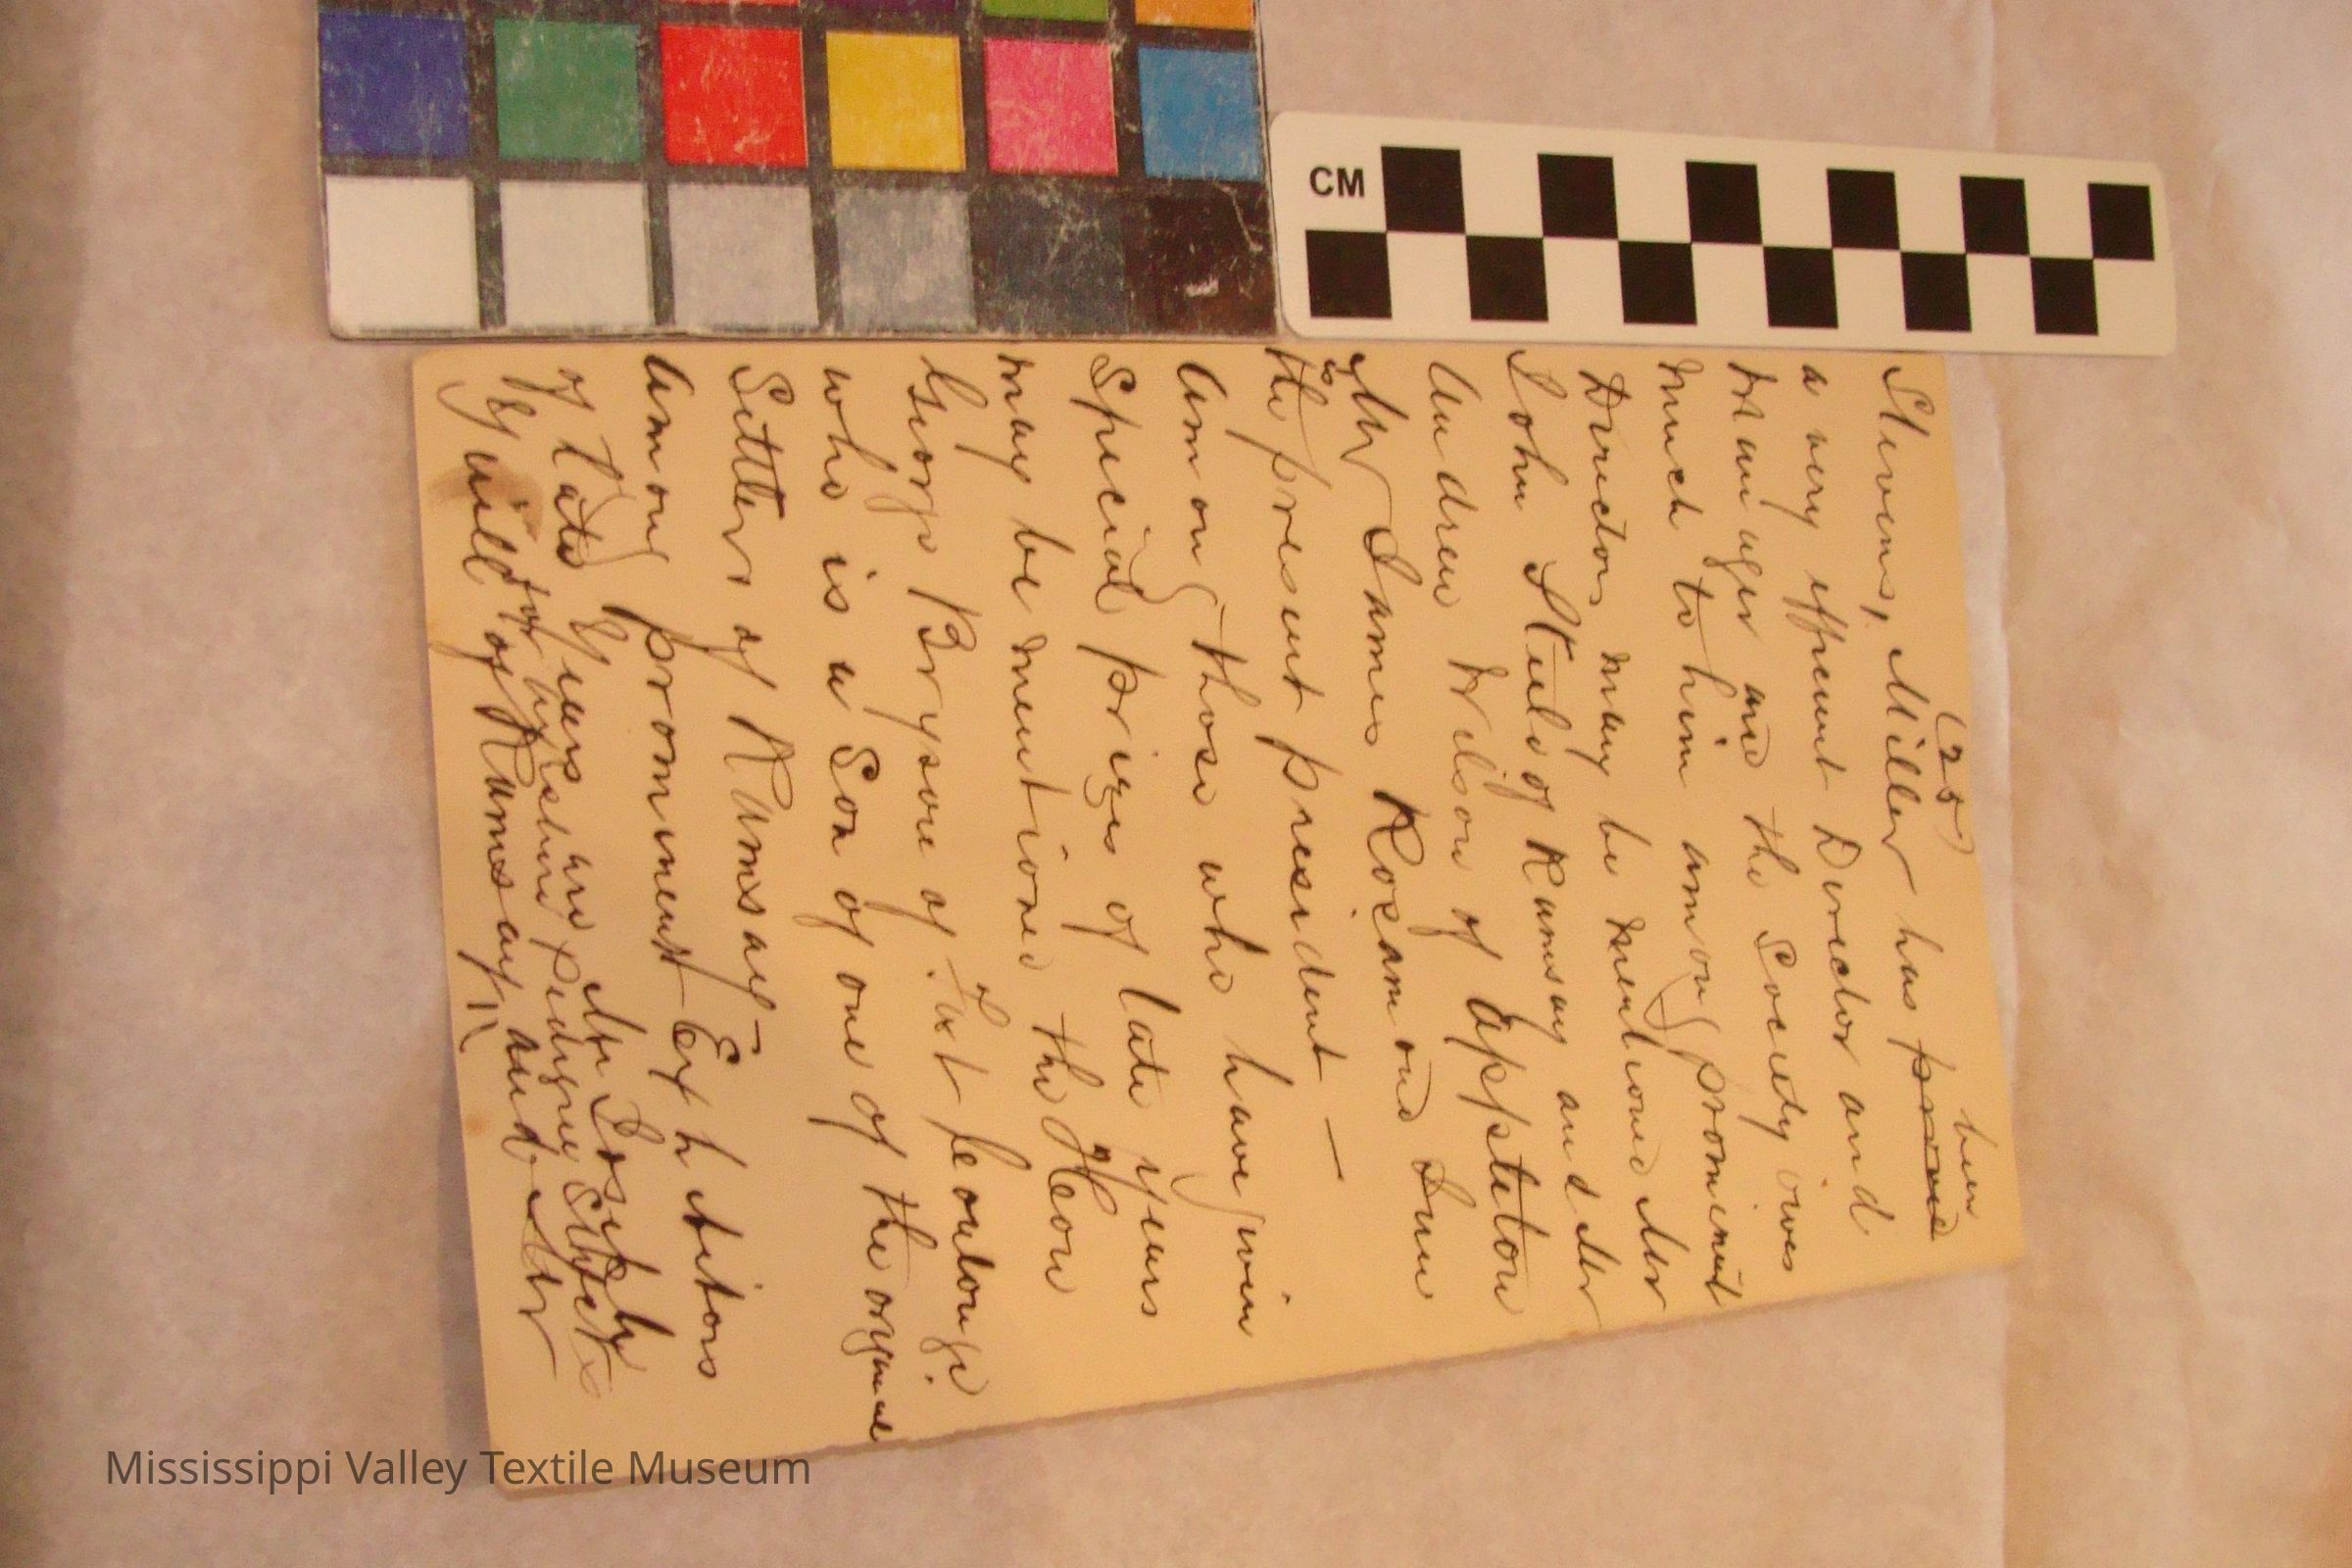 (25)
Stevens, Miller has ~~proved~~ been
a very efficient Director and
manager and the Society owes
much to him among prominent
Directors may be mentioned Mr
John Steele of Ramsay and Mr
Andrew Wilson of Appleton
Mr James Rosamond Junr
is the present president —
Among those who have given
Special prizes of late years
may be mentioned the Hon
George Bryson of Fort Coulonge.
who is a Son of one of the original
Settlers of Ramsay —
Among prominent Exhibitors
of late years are Mr Joseph
Yuill of Ramsay and Mr
for Ayrshire pedigree Stock
CM
Mississippi Valley Textile Museum